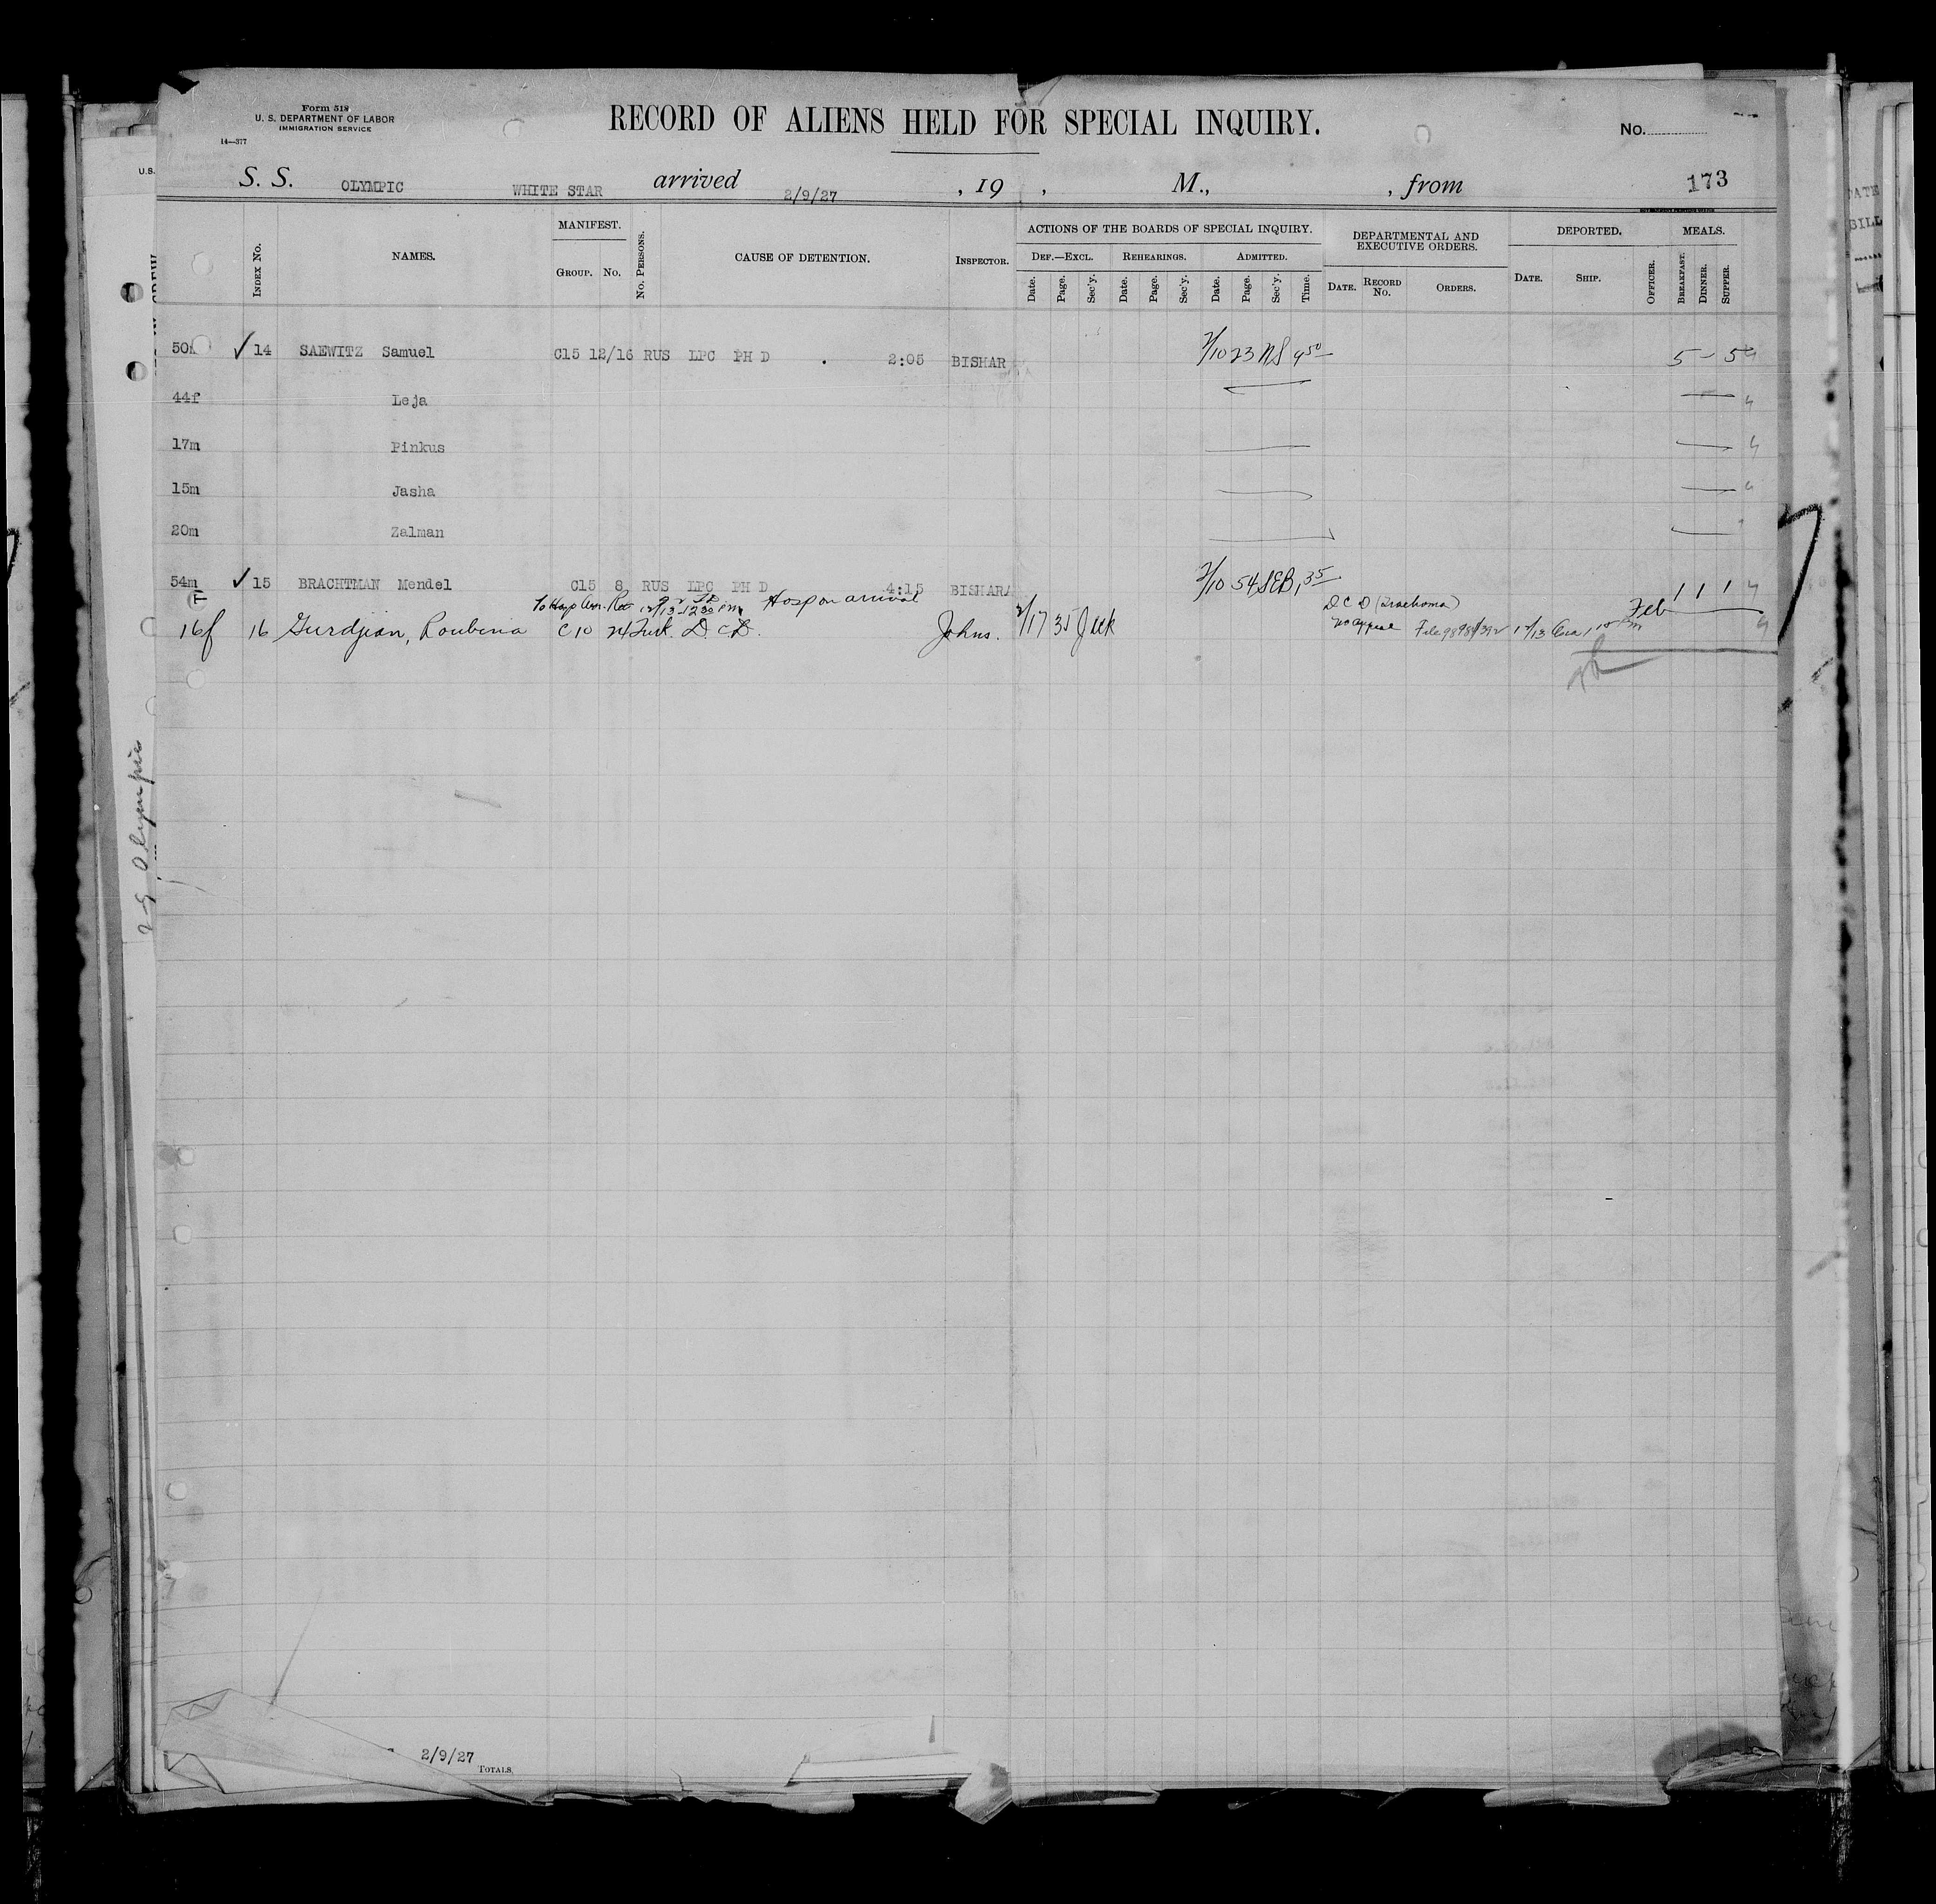 Form 518
U. S. DEPARTMENT OF LABOR
IMMIGRATION SERVICE
14—377
RECORD OF ALIENS HELD FOR SPECIAL INQUIRY.
No.
U.S.
S. S. OLYMPIC WHITE STAR arrived 2/9/27 , 19 , M., , from 173
INDEX No. NAMES. MANIFEST. GROUP. No. No. PERSONS. CAUSE OF DETENTION. INSPECTOR. ACTIONS OF THE BOARDS OF SPECIAL INQUIRY. DEF.—EXCL. REHEARINGS. ADMITTED. DEPARTMENTAL AND EXECUTIVE ORDERS. DEPORTED. MEALS.
Date. Page. Sec'y. Date. Page. Sec'y. Date. Page. Sec'y. Time. DATE. RECORD No. ORDERS. DATE. SHIP. OFFICER. BREAKFAST. DINNER. SUPPER.
50 ✓ 14 SAEWITZ Samuel C15 12/16 RUS LPC PH D 2:05 BISHAR 2/10 23 NS 9 50 5 – 5
44f Leja
17m Pinkus
15m Jasha
20m Zalman
54m ✓ 15 BRACHTMAN Mendel C15 8 RUS LPC PH D 4:15 BISHARA 2/10 54 SEB 1 35 1 1 1
Hosp on arrival D C D (Trachoma) Feb
16f 16 Gurdjian, Roubina C 10 24 Turk. D C D. Johns. 2/17 35 no appeal File
S S Olympic
2/9/27
TOTALS.